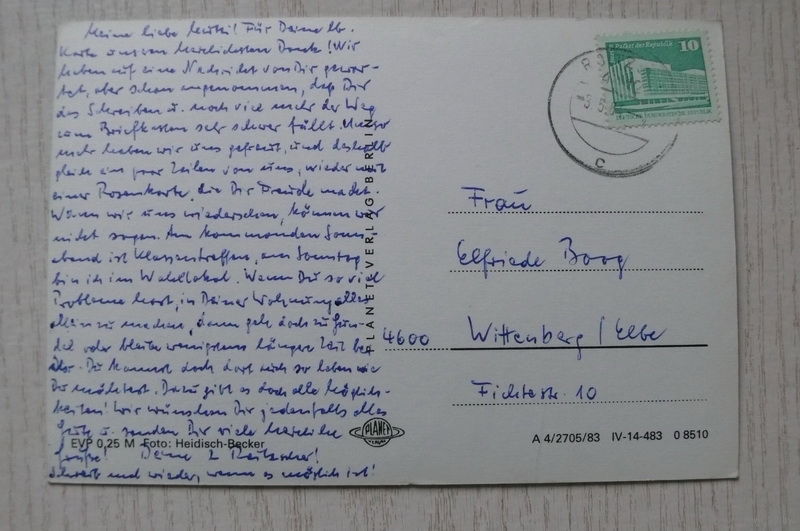 Meine liebe Mutti! Für Deine lb.
Karte unseren herzlichsten Dank! Wir
haben auf eine Nachricht von Dir gewar-
tet, aber schon angenommen, daß Dir
das Schreiben u. noch viel mehr der Weg
zum Briefkasten sehr schwer fällt. Umso
mehr haben wir uns gefreut, und deshalb
gleich ein paar Zeilen von uns, wieder mit
einer Rosenkarte, die Dir Freude macht.
Wann wir uns wiedersehen, können wir
nicht sagen. Am kommenden Sonn
abend ist Klassentreffen, am Sonntag
bin ich im Wahllokal. Wenn Du so viel
Probleme hast, in Deiner Wohnung alles
allein zu machen, dann geh doch zu
oder bleibe wenigstens längere Zeit bei
Du kannst doch dort auch so leben wie
Du möchtest. Dazu gibt es doch alle Möglich-
keiten! Wir wünschen Dir jedenfalls alles
Gute u. senden Dir viele herzliche
Grüße! Deine 2
Schreib mal wieder, wenn es möglich ist!
EVP 0,25 M Foto: Heidisch-Becker
PLANET-VERLAG BERLIN
PLANET
Palast der Republik
10
DEUTSCHE DEMOKRATISCHE REPUBLIK
C
Frau
Elfriede Boog
4600 Wittenberg / Elbe
Fichtestr. 10
A 4/2705/83 IV-14-483 0 8510